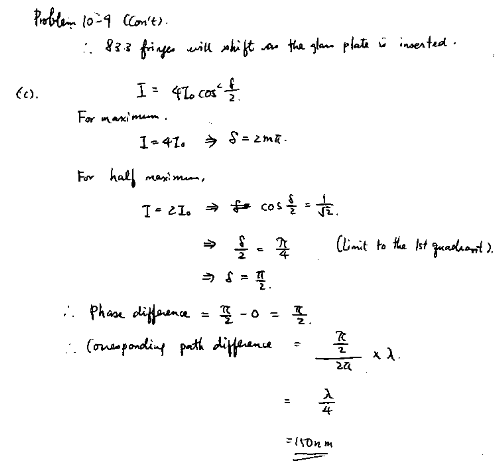 Problem 10-9 (Con't).
∴ 83.3 fringes will shift as the glass plate is inserted.
(c). I = 4I₀ cos² δ/2.
For maximum.
I = 4I₀ ⇒ δ = 2mπ.
For half maximum,
I = 2I₀ ⇒ cos δ/2 = 1/√2.
⇒ δ/2 = π/4 (Limit to the 1st quadrant).
⇒ δ = π/2.
∴ Phase difference = π/2 - 0 = π/2.
∴ Corresponding path difference = (π/2)/(2π) × λ.
= λ/4
= 150nm